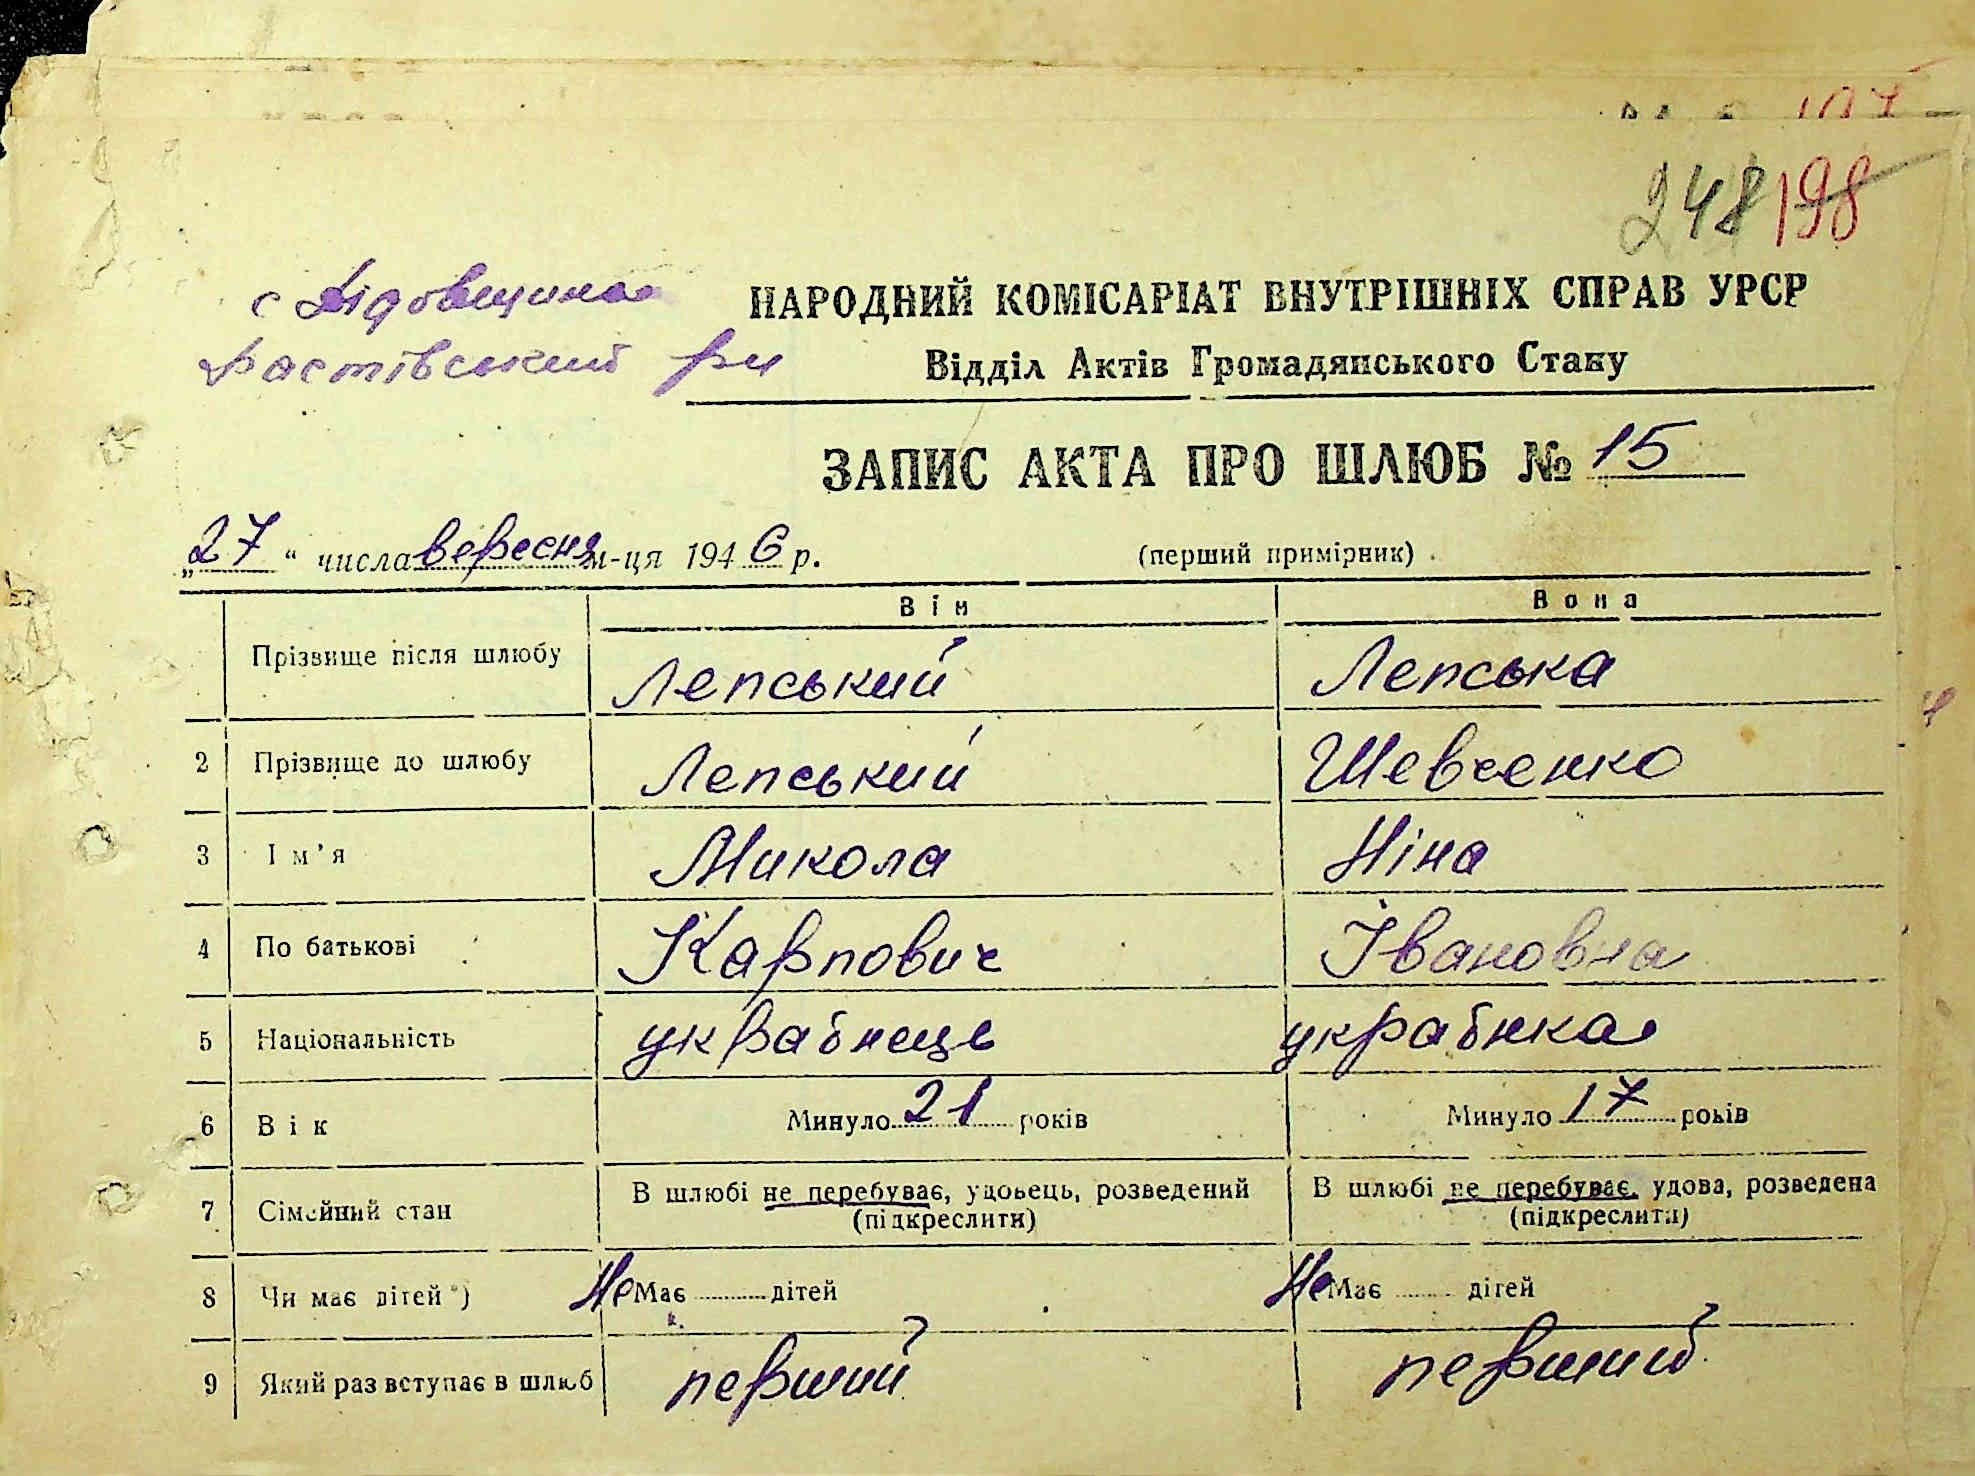 248 198
с Дідовщина
Фастівський р-н
НАРОДНИЙ КОМІСАРІАТ ВНУТРІШНІХ СПРАВ УРСР
Відділ Актів Громадянського Стану
ЗАПИС АКТА ПРО ШЛЮБ № 15
„27“ числа вересня м-ця 1946 р. (перший примірник)
Він Вона
Прізвище після шлюбу Лепський Лепська
2 Прізвище до шлюбу Лепський Шевченко
3 Ім’я Микола Ніна
4 По батькові Карпович Івановна
5 Національність українець українка
6 Вік Минуло 21 років Минуло 17 років
7 Сімейний стан В шлюбі не перебуває, удовець, розведений В шлюбі не перебуває, удова, розведена
(підкреслити) (підкреслити)
8 Чи має дітей *) Не Має дітей Не Має дітей
9 Який раз вступає в шлюб перший перший